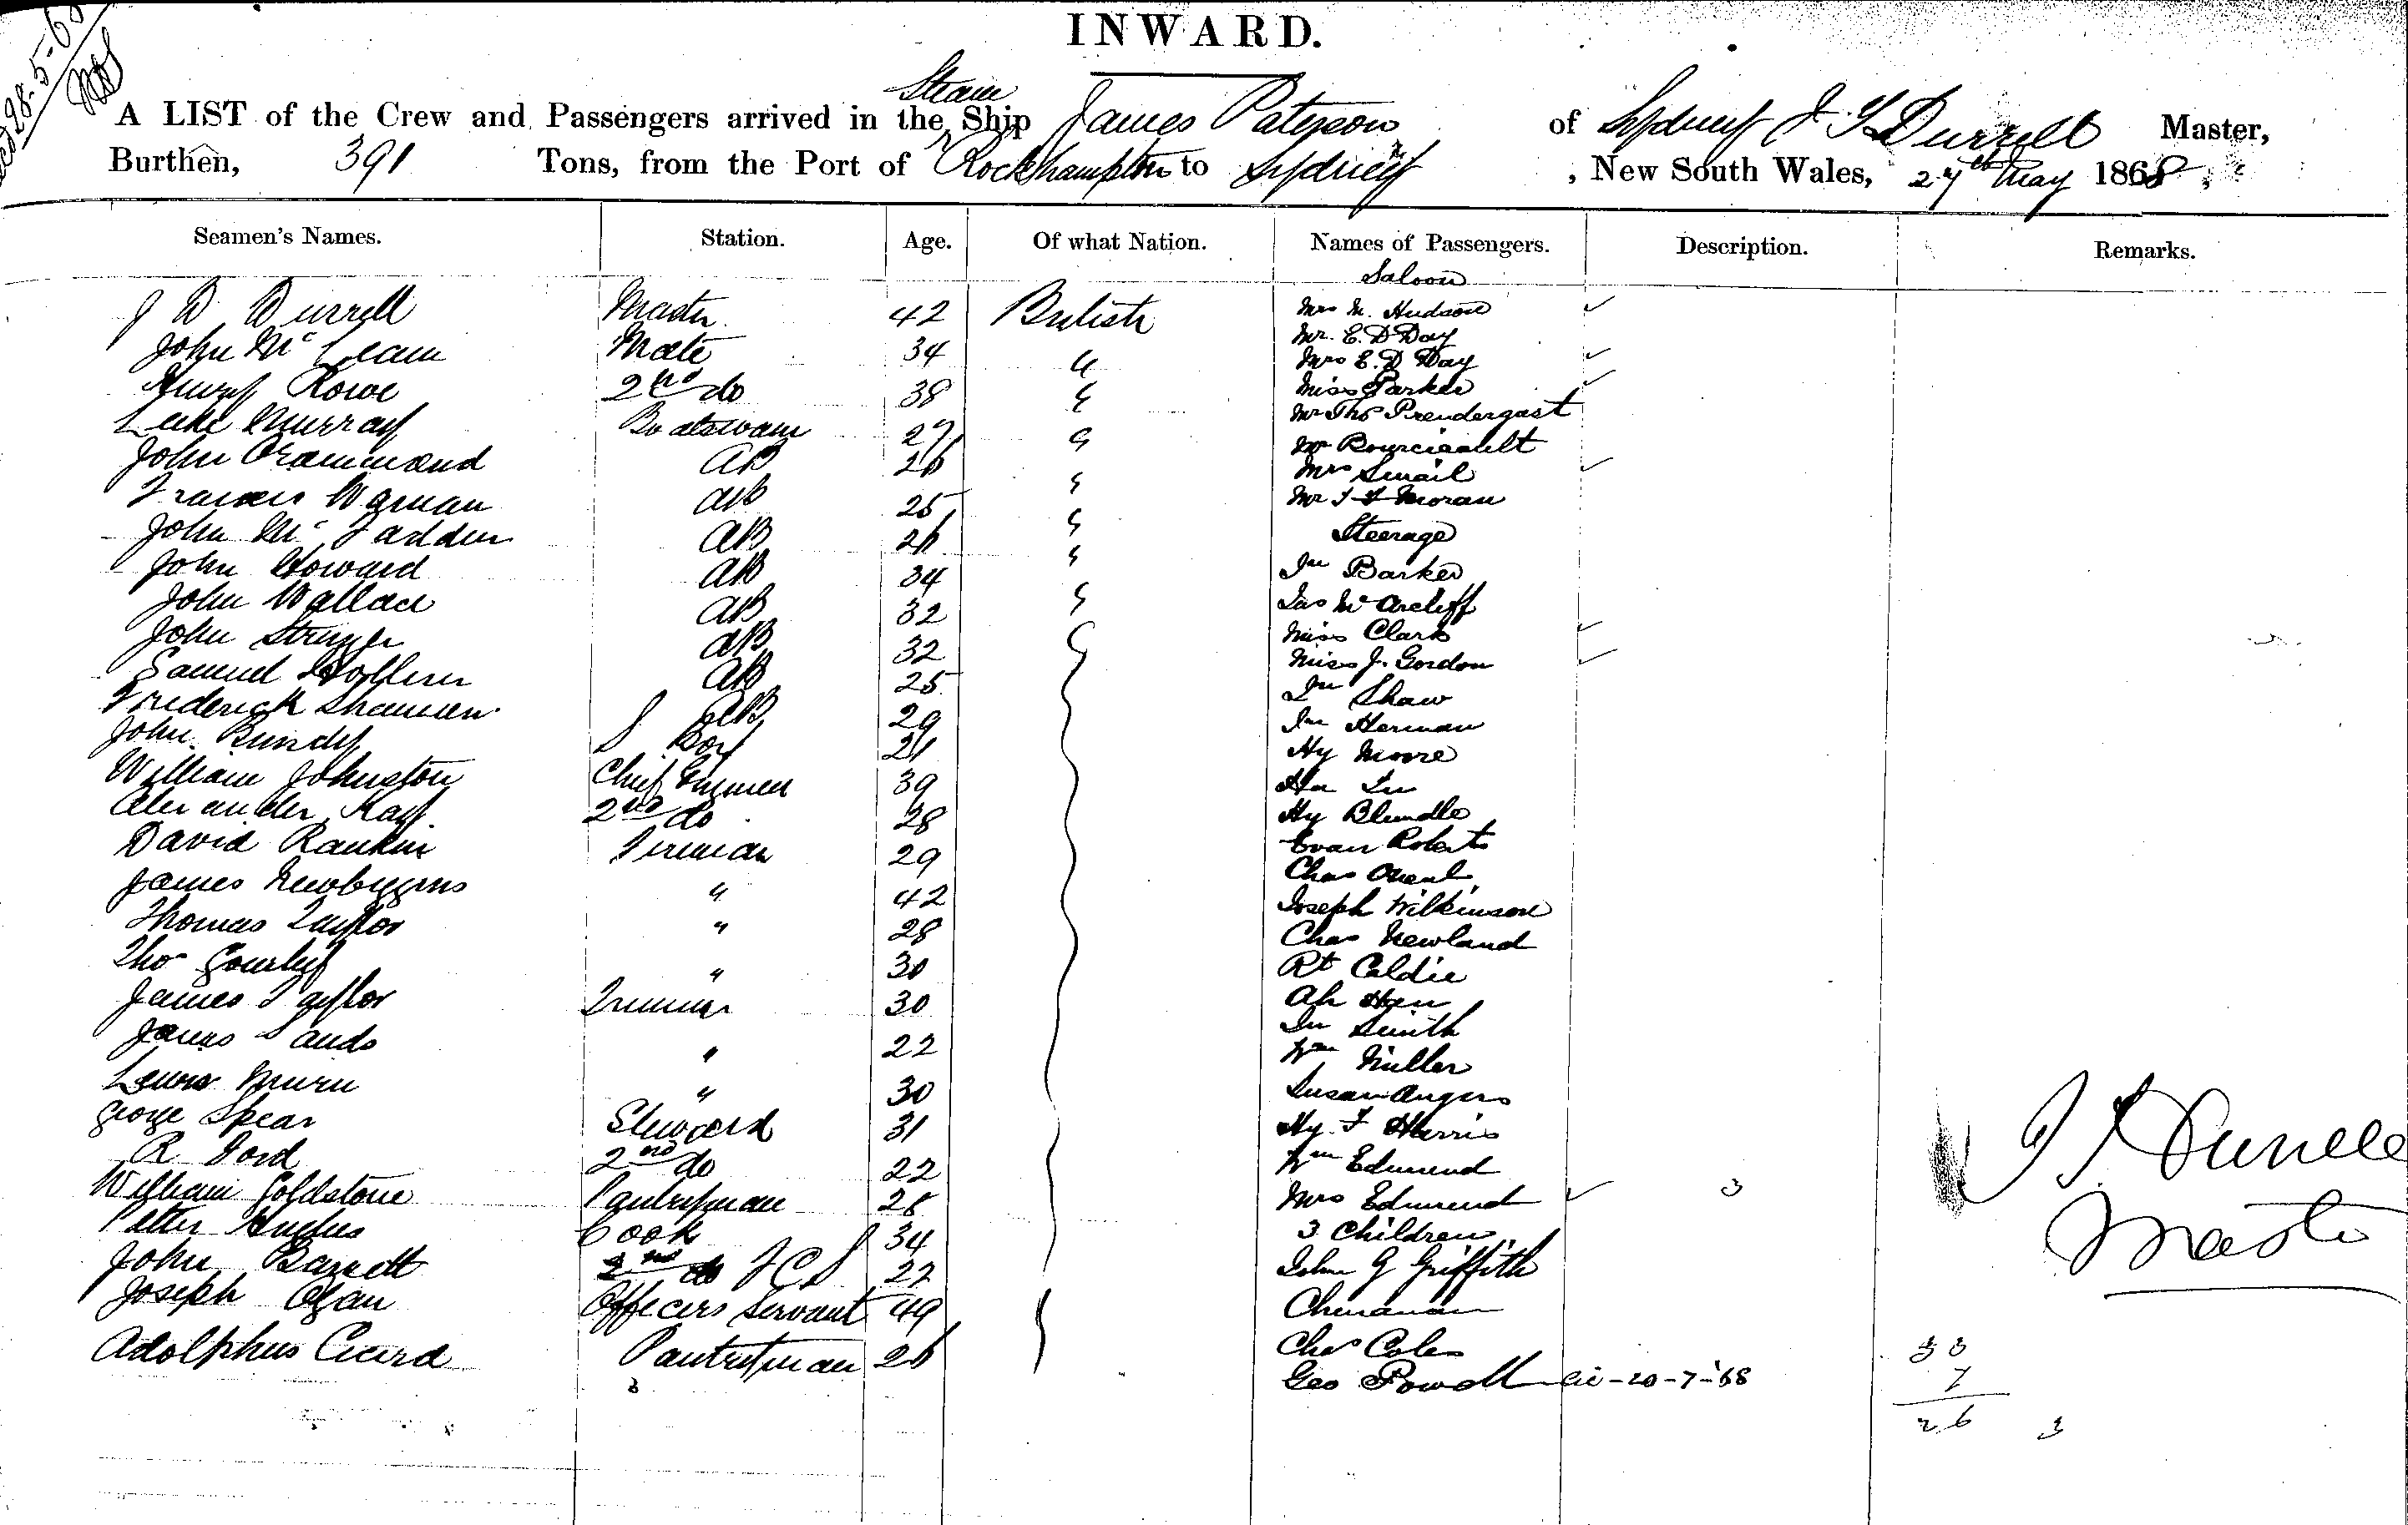 28-5-6
INWARD.
Steam
A LIST of the Crew and Passengers arrived in the Ship James Paterson of Sydney J Durrell Master,
Burthen, 391 Tons, from the Port of Rockhampton to Sydney, New South Wales, 27th May 1868,
Seamen's Names. Station. Age. Of what Nation. Names of Passengers. Description. Remarks.
Saloon
J D Durrell Master 42 British Mrs M. Hudson
Mr. E. D Day
John Mc Lean Mate 34 " Mrs E. D Day
Henry Rowe 2nd do 38 " Miss Parker
Mr Thos Prendergast
Luke Murray Boatswain 27 "
Mr Bourcicault
John AB 26 " Mrs Smail
Francis AB 25 " Mr Moran
Steerage
John Mc Fadden AB 26 "
John Howard AB 34 " Jn Barker
John Wallace AB 32 Jas
John AB 32 Miss Clark
Miss J. Gordon
Samuel AB 25 Jn Shaw
Frederick AB 29 Jn Herman
John Bundy Boy 21 Hy Moore
William Johnston Chief 39
Alexander Kay 2nd do 28 Hy Blundle
David Rankin Fireman 29 Evan Roberts
Chas Oneal
James Newbiggins " 42 Joseph Wilkinson
Thomas Taylor " 28 Chas Newland
Thos Gourley " 30 Rt Caldie
James Taylor Trimmer 30 Ah Han
Jn Smith
James Sands " 22 Wm Miller
Lewis " 30 Susan Angers
George Spear Steward 31 Hy F Harris
R Ford 2nd do 22 Wm Edmund
J Durrell
William Goldstone Pantryman 25 Mrs Edmund 3
Master
Peter Hughes Cook 34 3 Children
John Barrett 2nd do F C S 22 John G Griffith
Joseph Officers Servant 49 Chinaman
Adolphus Pantryman 26 Chas Coles
33
Geo Powell 20-7-'68
7
26 3